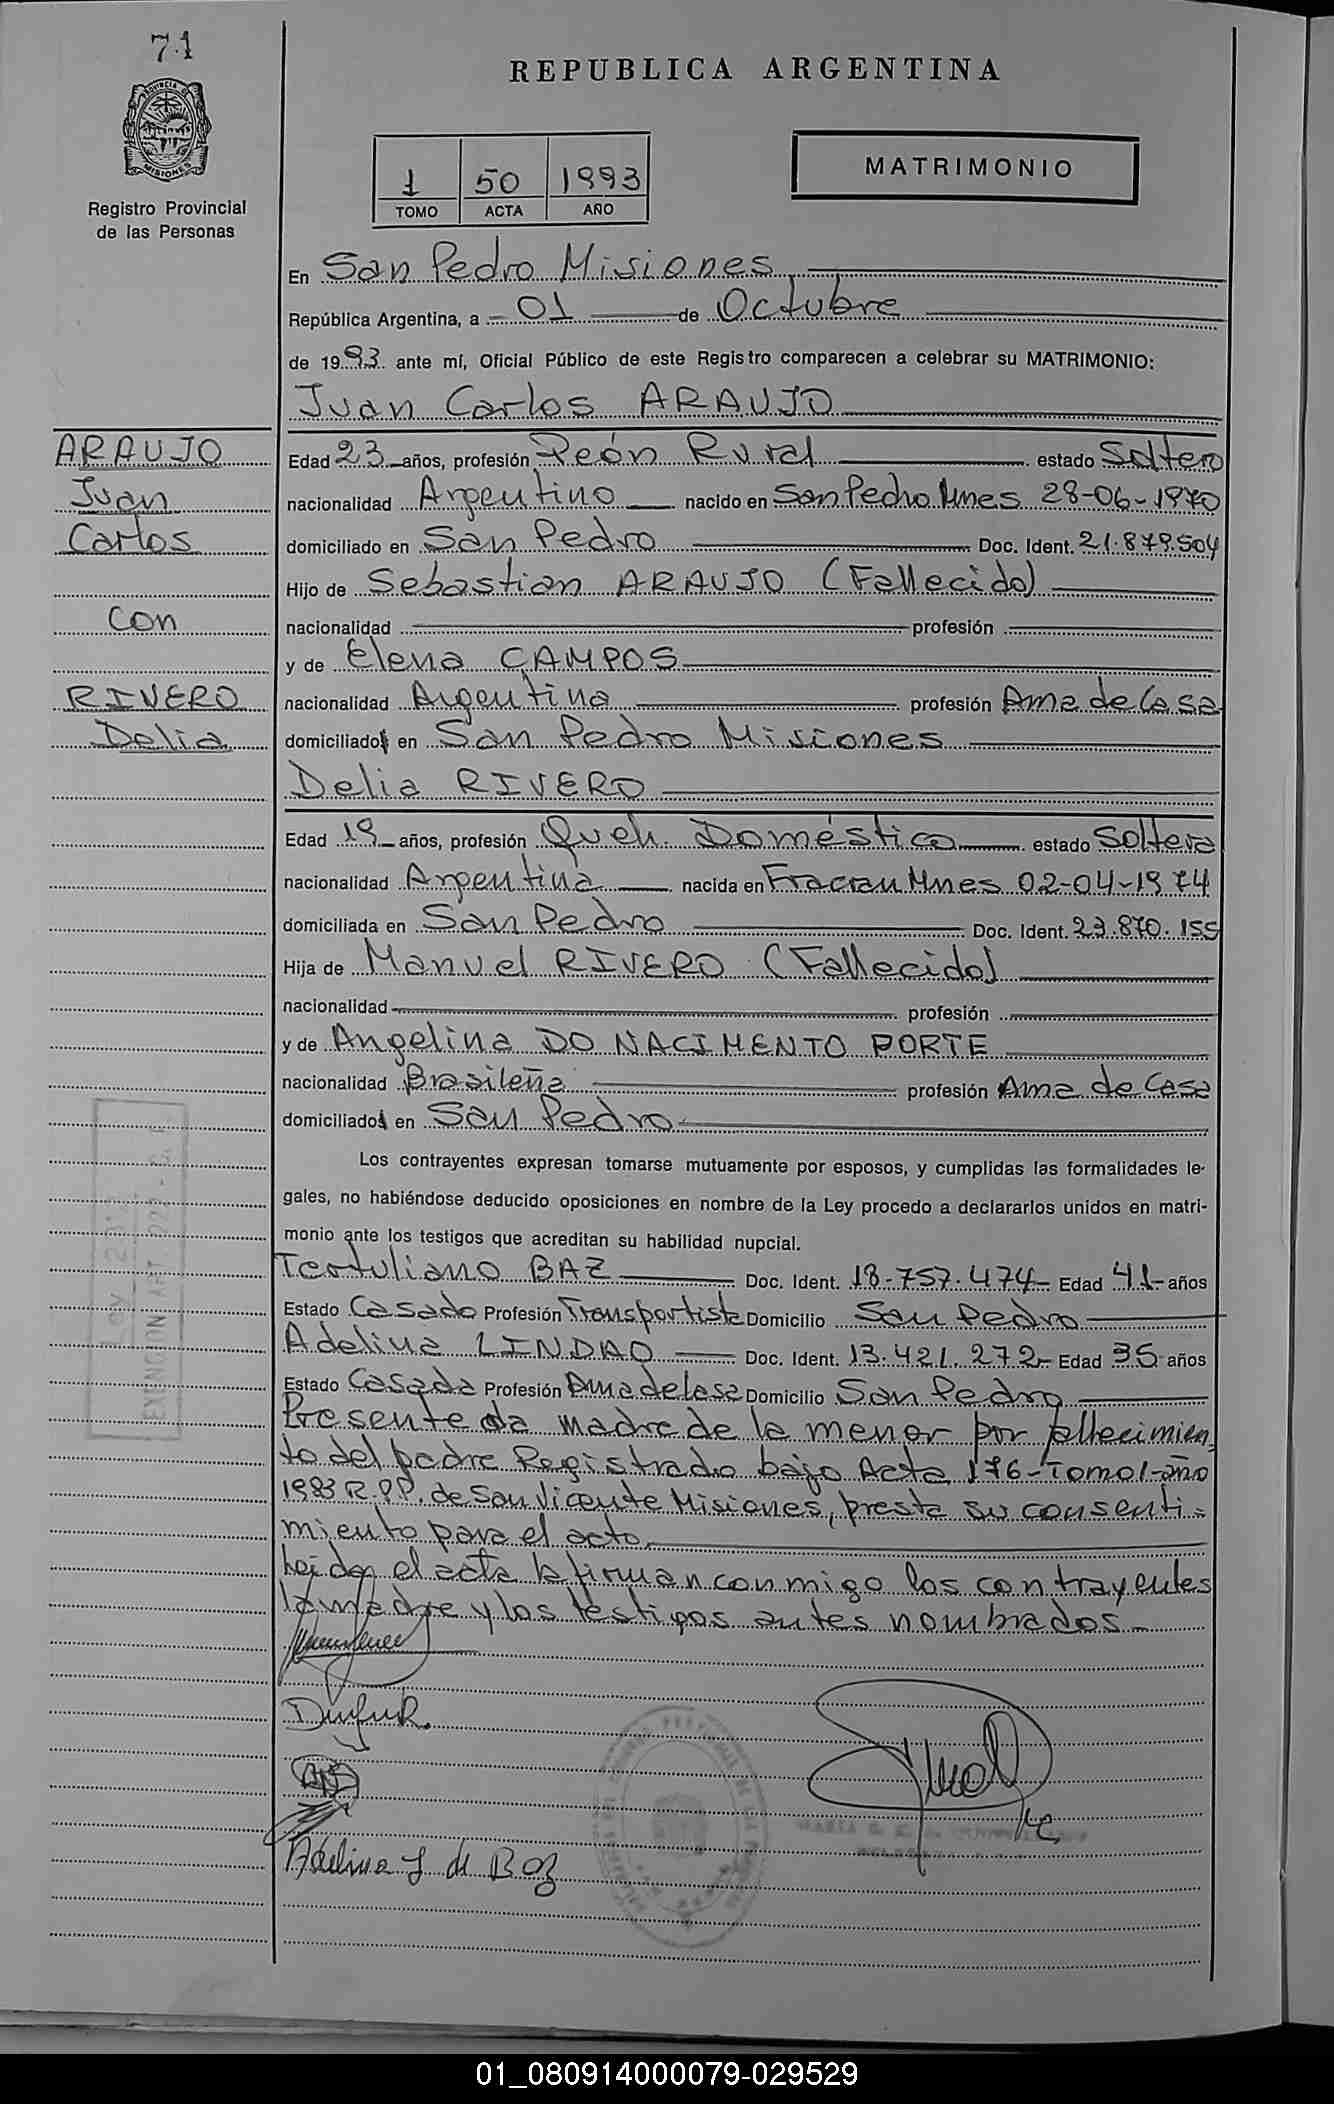 71
REPUBLICA ARGENTINA
PROVINCIA DE
MISIONES
Registro Provincial
de las Personas
1 50 1993
TOMO ACTA AÑO
MATRIMONIO
En San Pedro Misiones
República Argentina, a 01 de Octubre
de 1993 ante mí, Oficial Público de este Registro comparecen a celebrar su MATRIMONIO:
Juan Carlos ARAUJO
ARAUJO
Juan
Carlos
con
RIVERO
Delia
Edad 23 años, profesión Peón Rural estado Soltero
nacionalidad Argentino nacido en San Pedro Mnes 28-06-1970
domiciliado en San Pedro Doc. Ident. 21.879.504
Hijo de Sebastian ARAUJO (Fallecido)
nacionalidad profesión
y de Elena CAMPOS
nacionalidad Argentina profesión Ama de Casa
domiciliados en San Pedro Misiones
Delia RIVERO
Edad 19 años, profesión Queh. Doméstico estado Soltera
nacionalidad Argentina nacida en Fracran Mnes 02-04-1974
domiciliada en San Pedro Doc. Ident. 23.870.155
Hija de Manuel RIVERO (Fallecido)
nacionalidad profesión
y de Angelina DO NACIMENTO PORTE
nacionalidad Brasileña profesión Ama de Casa
domiciliados en San Pedro
Los contrayentes expresan tomarse mutuamente por esposos, y cumplidas las formalidades le-
gales, no habiéndose deducido oposiciones en nombre de la Ley procedo a declararlos unidos en matri-
monio ante los testigos que acreditan su habilidad nupcial.
Tertuliano BAZ Doc. Ident. 18.757.474 Edad 41 años
Estado Casado Profesión Transportista Domicilio San Pedro
Adelina LINDAO Doc. Ident. 13.421.272 Edad 35 años
Estado Casada Profesión Ama de Casa Domicilio San Pedro
Presente la madre de la menor por fallecimien
to del padre Registrado bajo Acta 176-Tomo 1-año
1983 R.P.P. de San Vicente Misiones, presta su consenti=
miento para el acto.
Leida el acta la firman conmigo los contrayentes
la madre y los testigos antes nombrados
Adelina L de Baz
01_080914000079-029529